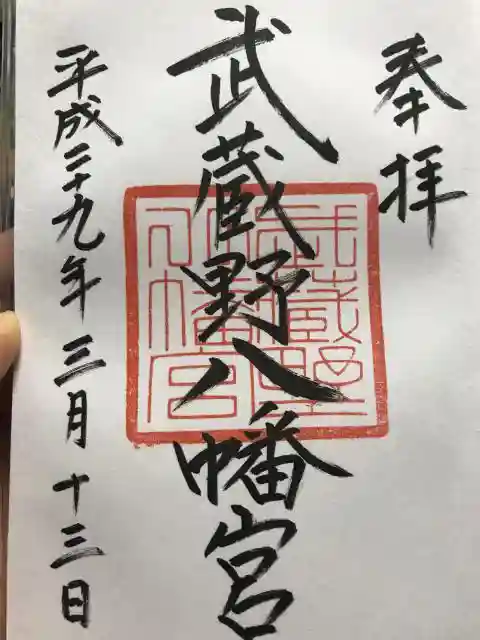 奉拝
武蔵野八幡宮
平成二十九年三月十三日
武蔵野
八幡宮